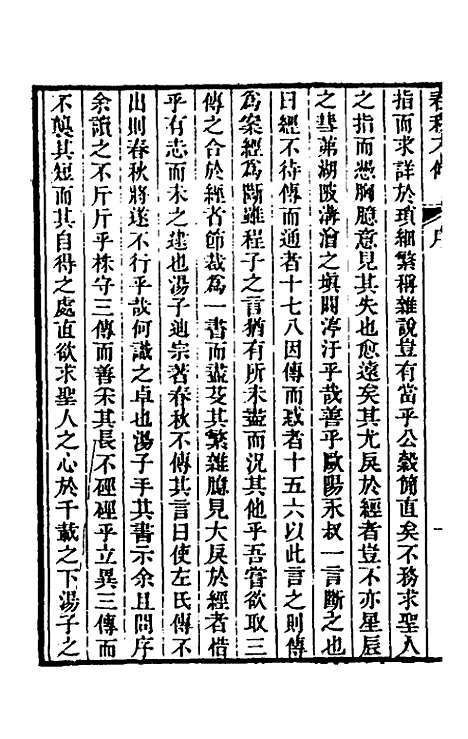 春秋不傳 序
指而求詳於瑣細繁稱雜說豈有當乎公穀簡直矣不務求聖人
之指而憑胸臆意見其失也愈遠矣其尤戾於經者豈不亦星辰
之彗茀湖陂溝澮之填閼渟汙乎哉善乎歐陽永叔一言斷之也
曰經不待傳而通者十七八因傳而惑者十五六以此言之則傳
為案經為斷雖程子之言猶有所未盡而況其他乎吾嘗欲取三
傳之合於經者節裁為一書而盡芟其繁雜臆見大戾於經者惜
乎有志而未之逮也湯子迪宗著春秋不傳其言曰使左氏傳不
出則春秋將遂不行乎哉何識之卓也湯子手其書示余且問序
余讀之不斤斤乎株守三傳而善采其長不硜硜乎立異三傳而
不襲其短而其自得之處直欲求聖人之心於千載之下湯子之